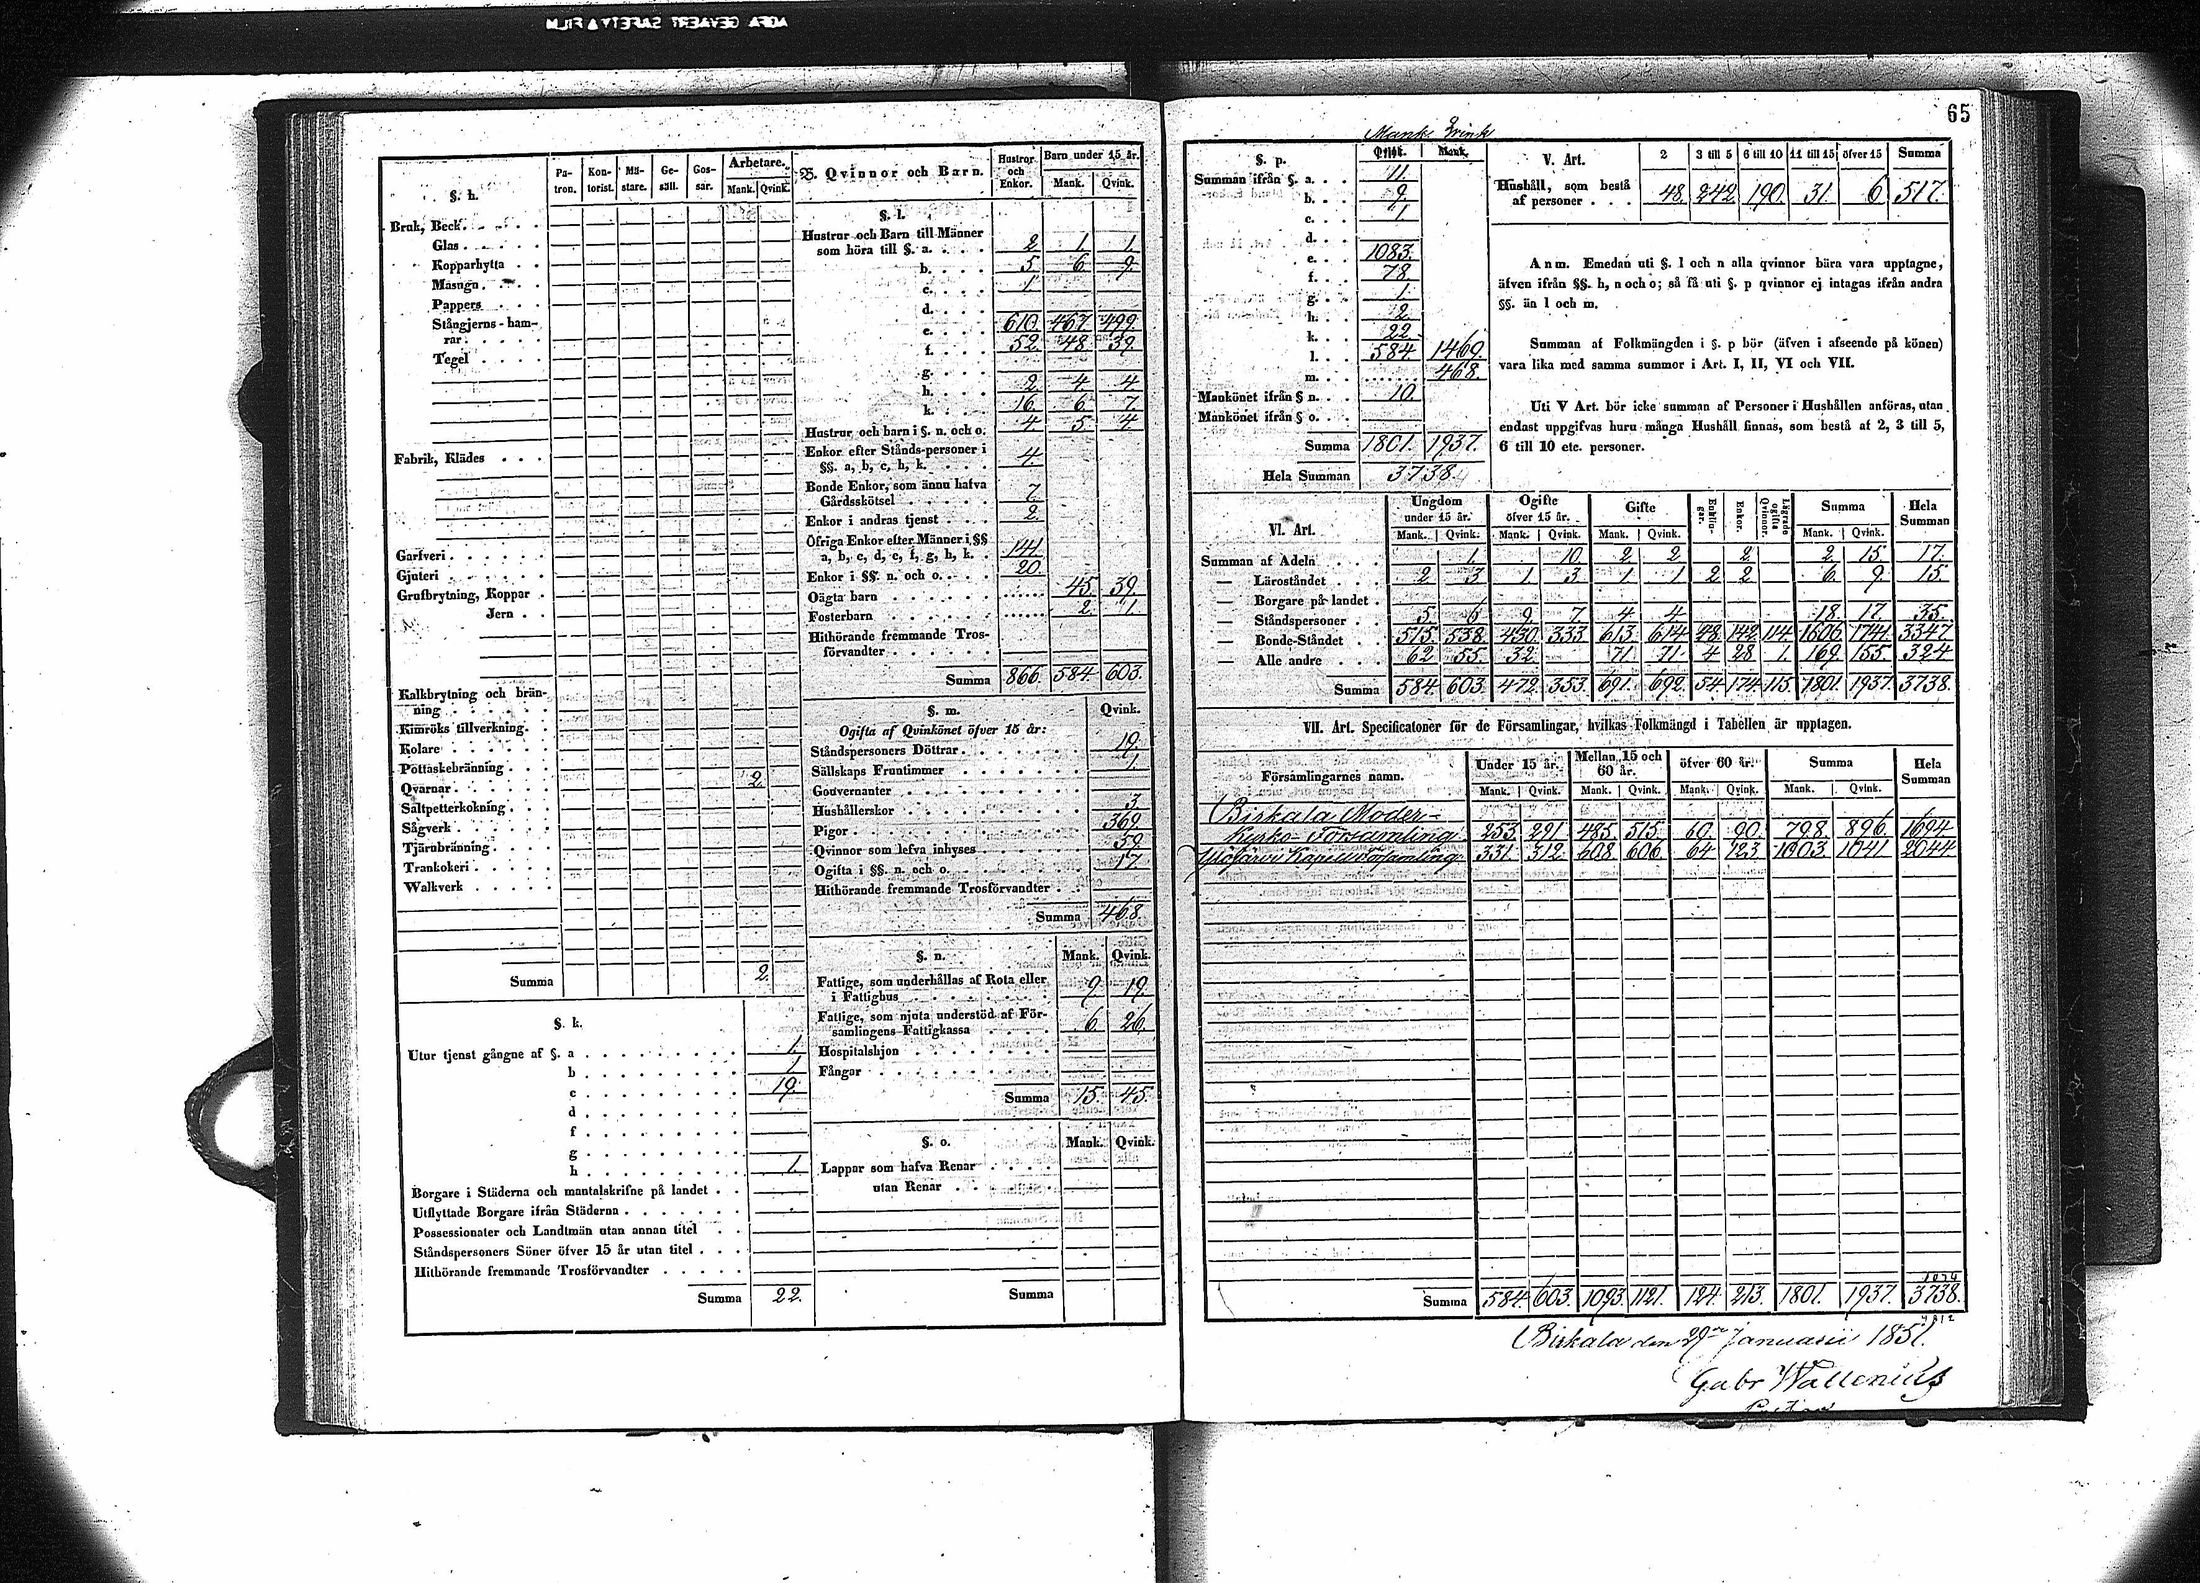 AGFA GEVAERT SAFETY FILM
65
§. h.
Pa-tron.
Kon-torist.
Mä-stare.
Ge-säll.
Gos-sar.
Arbetare.
Mank. Qvink.
Bruk, Beck
Glas
Kopparhytta
Masugn
Pappers
Stångjerns-ham-
rar
Tegel
Fabrik, Klädes
Garfveri
Gjuteri
Grufbrytning, Koppar
Jern
Kalkbrytning och brän-
ning
Kimröks tillverkning
Kolare
Pottaskebränning
Qvarnar 2.
Saltpetterkokning
Sågverk
Tjärubränning
Trankokeri
Walkverk
Summa 2.
§. k.
Utur tjenst gångne af §. a 1.
b 1
c 19.
d
f
g
h 1.
Borgare i Städerna och mantalskrifne på landet
Utflyttade Borgare ifrån Städerna
Possessionater och Landtmän utan annan titel
Ståndspersoners Söner öfver 15 år utan titel
Hithörande fremmande Trosförvandter
Summa 22.
B. Qvinnor och Barn.
Hustrur och Enkor.
Barn under 15 år.
Mank. Qvink.
§. l.
Hustrur och Barn till Männer
som höra till §. a. 2 1. 1.
b. 5. 6. 9.
c. 1.
d.
e. 610. 467. 499.
f. 52. 48. 39.
g.
h. 2. 4. 4
k. 16. 6. 7.
Hustrur och barn i §. n. och o. 4 5. 4
Enkor efter Stånds-personer i
§§. a, b, c, h, k. 4.
Bonde Enkor, som ännu hafva
Gårdsskötsel 7.
Enkor i andras tjenst 2.
Öfriga Enkor efter Männer i §§
a, b, c, d, e, f, g, h, k. 141.
Enkor i §§. n. och o. 20.
Oägta barn 45. 39.
Fosterbarn 2. 1.
Hithörande fremmande Tros-
förvandter
Summa 866. 584. 603.
§. m. Qvink.
Ogifta af Qvinkönet öfver 15 år:
Ståndspersoners Döttrar 19.
Sällskaps Fruntimmer 1.
Gouvernanter
Hushållerskor 3.
Pigor 369
Qvinnor som lefva inhyses 59.
Ogifta i §§. n. och o. 17.
Hithörande fremmande Trosförvandter
Summa 468.
§. n. Mank. Qvink.
Fattige, som underhållas af Rota eller
i Fattighus 9. 19.
Fattige, som njuta understöd af För-
samlingens Fattigkassa 6 26.
Hospitalshjon
Fångar
Summa 15. 45.
§. o. Mank. Qvink.
Lappar som hafva Renar
utan Renar
Summa
Mank. Qvink
§. p. Qvink. Mank.
Summan ifrån §. a. 11.
b. 9.
c. 1.
d.
e. 1083.
f. 78.
g. 1.
h. 2.
k. 22.
l. 584. 1469.
m. 468.
Mankönet ifrån § n. 10.
Mankönet ifrån § o.
Summa 1801. 1937.
Hela Summan 3738.
V. Art. 2 3 till 5 6 till 10 11 till 15 öfver 15 Summa
Hushåll, som bestå
af personer 48. 242. 190. 31. 6. 517.
Anm. Emedan uti §. l och n alla qvinnor böra vara upptagne,
äfven ifrån §§. h, n och o; så få uti §. p qvinnor ej intagas ifrån andra
§§. än l och m.
Summan af Folkmängden i §. p bör (äfven i afseende på könen)
vara lika med samma summor i Art. I, II, VI och VII.
Uti V Art. bör icke summan af Personer i Hushållen anföras, utan
endast uppgifvas huru många Hushåll finnas, som bestå af 2, 3 till 5,
6 till 10 etc. personer.
VI. Art.
Ungdom under 15 år.
Ogifte öfver 15 år.
Gifte
Enklin-gar.
Enkor.
Lägrade ogifta Qvinnor.
Summa
Hela Summan
Mank. Qvink. Mank. Qvink. Mank. Qvink. Mank. Qvink.
Summan af Adeln 1 10. 2 2 2. 2. 15. 17.
— Läroståndet 2 3 1 3 1 1 2 2 6. 9. 15.
— Borgare på landet
— Ståndspersoner 5. 6 9. 7. 4 4 18. 17. 35.
— Bonde-Ståndet 515. 538. 430. 333. 613. 614. 48. 142. 114 1606. 1741. 3347.
— Alle andre 62 55. 32. 71. 71. 4 28 1. 169. 155. 324
Summa 584. 603. 472. 353. 691. 692. 54. 174. 115. 1801. 1937. 3738.
VII. Art. Specificatoner för de Församlingar, hvilkas Folkmängd i Tabellen är upptagen.
Församlingarnes namn.
Under 15 år.
Mellan 15 och 60 år.
öfver 60 år.
Summa
Hela Summan
Mank. Qvink. Mank. Qvink. Mank. Qvink. Mank. Qvink.
Birkala Moder-
Kyrko-Församling 253. 291. 485. 515. 60. 90. 798. 896. 1694
Ylöjärvi Kapellförsamling 331. 312. 608. 606. 64 123. 1003. 1041. 2044.
Summa 584. 603. 1093. 1121. 124. 213. 1801. 1937. 3738.
Birkala den 29de Januarii 1851.
Gabr Wallenius